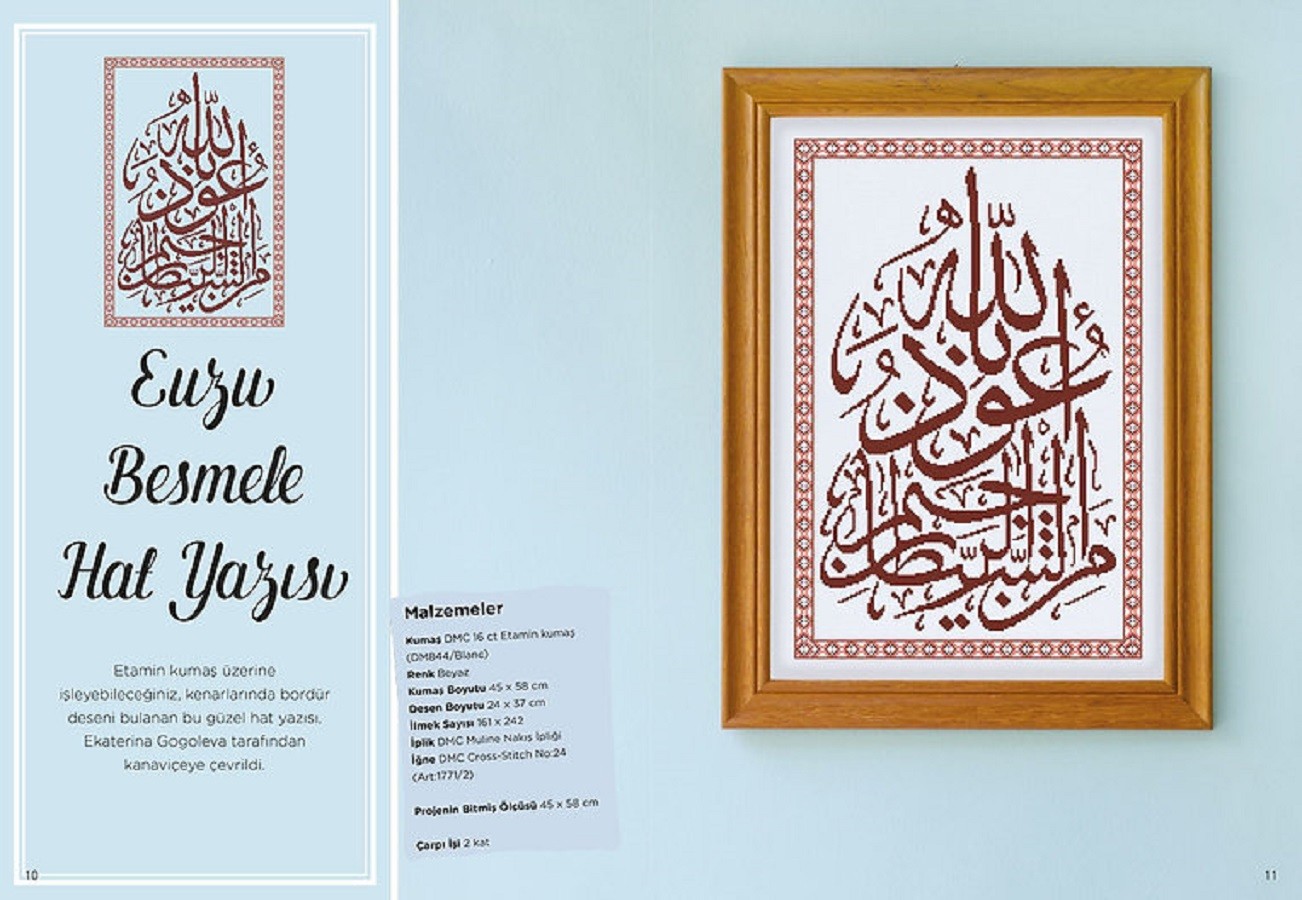 Euzu
Besmele
Hat Yazısı
Etamin kumaş üzerine
işleyebileceğiniz, kenarlarında bordür
deseni bulanan bu güzel hat yazısı,
Ekaterina Gogoleva tarafından
kanaviçeye çevrildi.
10
Malzemeler
Kumaş DMC 16 ct Etamin kumaş
(DM844/Blanc)
Renk Beyaz
Kumaş Boyutu 45 x 58 cm
Desen Boyutu 24 x 37 cm
İlmek Sayısı 161 x 242
İplik DMC Muline Nakış İpliği
İğne DMC Cross-Stitch No:24
(Art:1771/2)
Projenin Bitmiş Ölçüsü 45 x 58 cm
Çarpı İşi 2 kat
أعوذ بالله
من الشيطان الرجيم
11